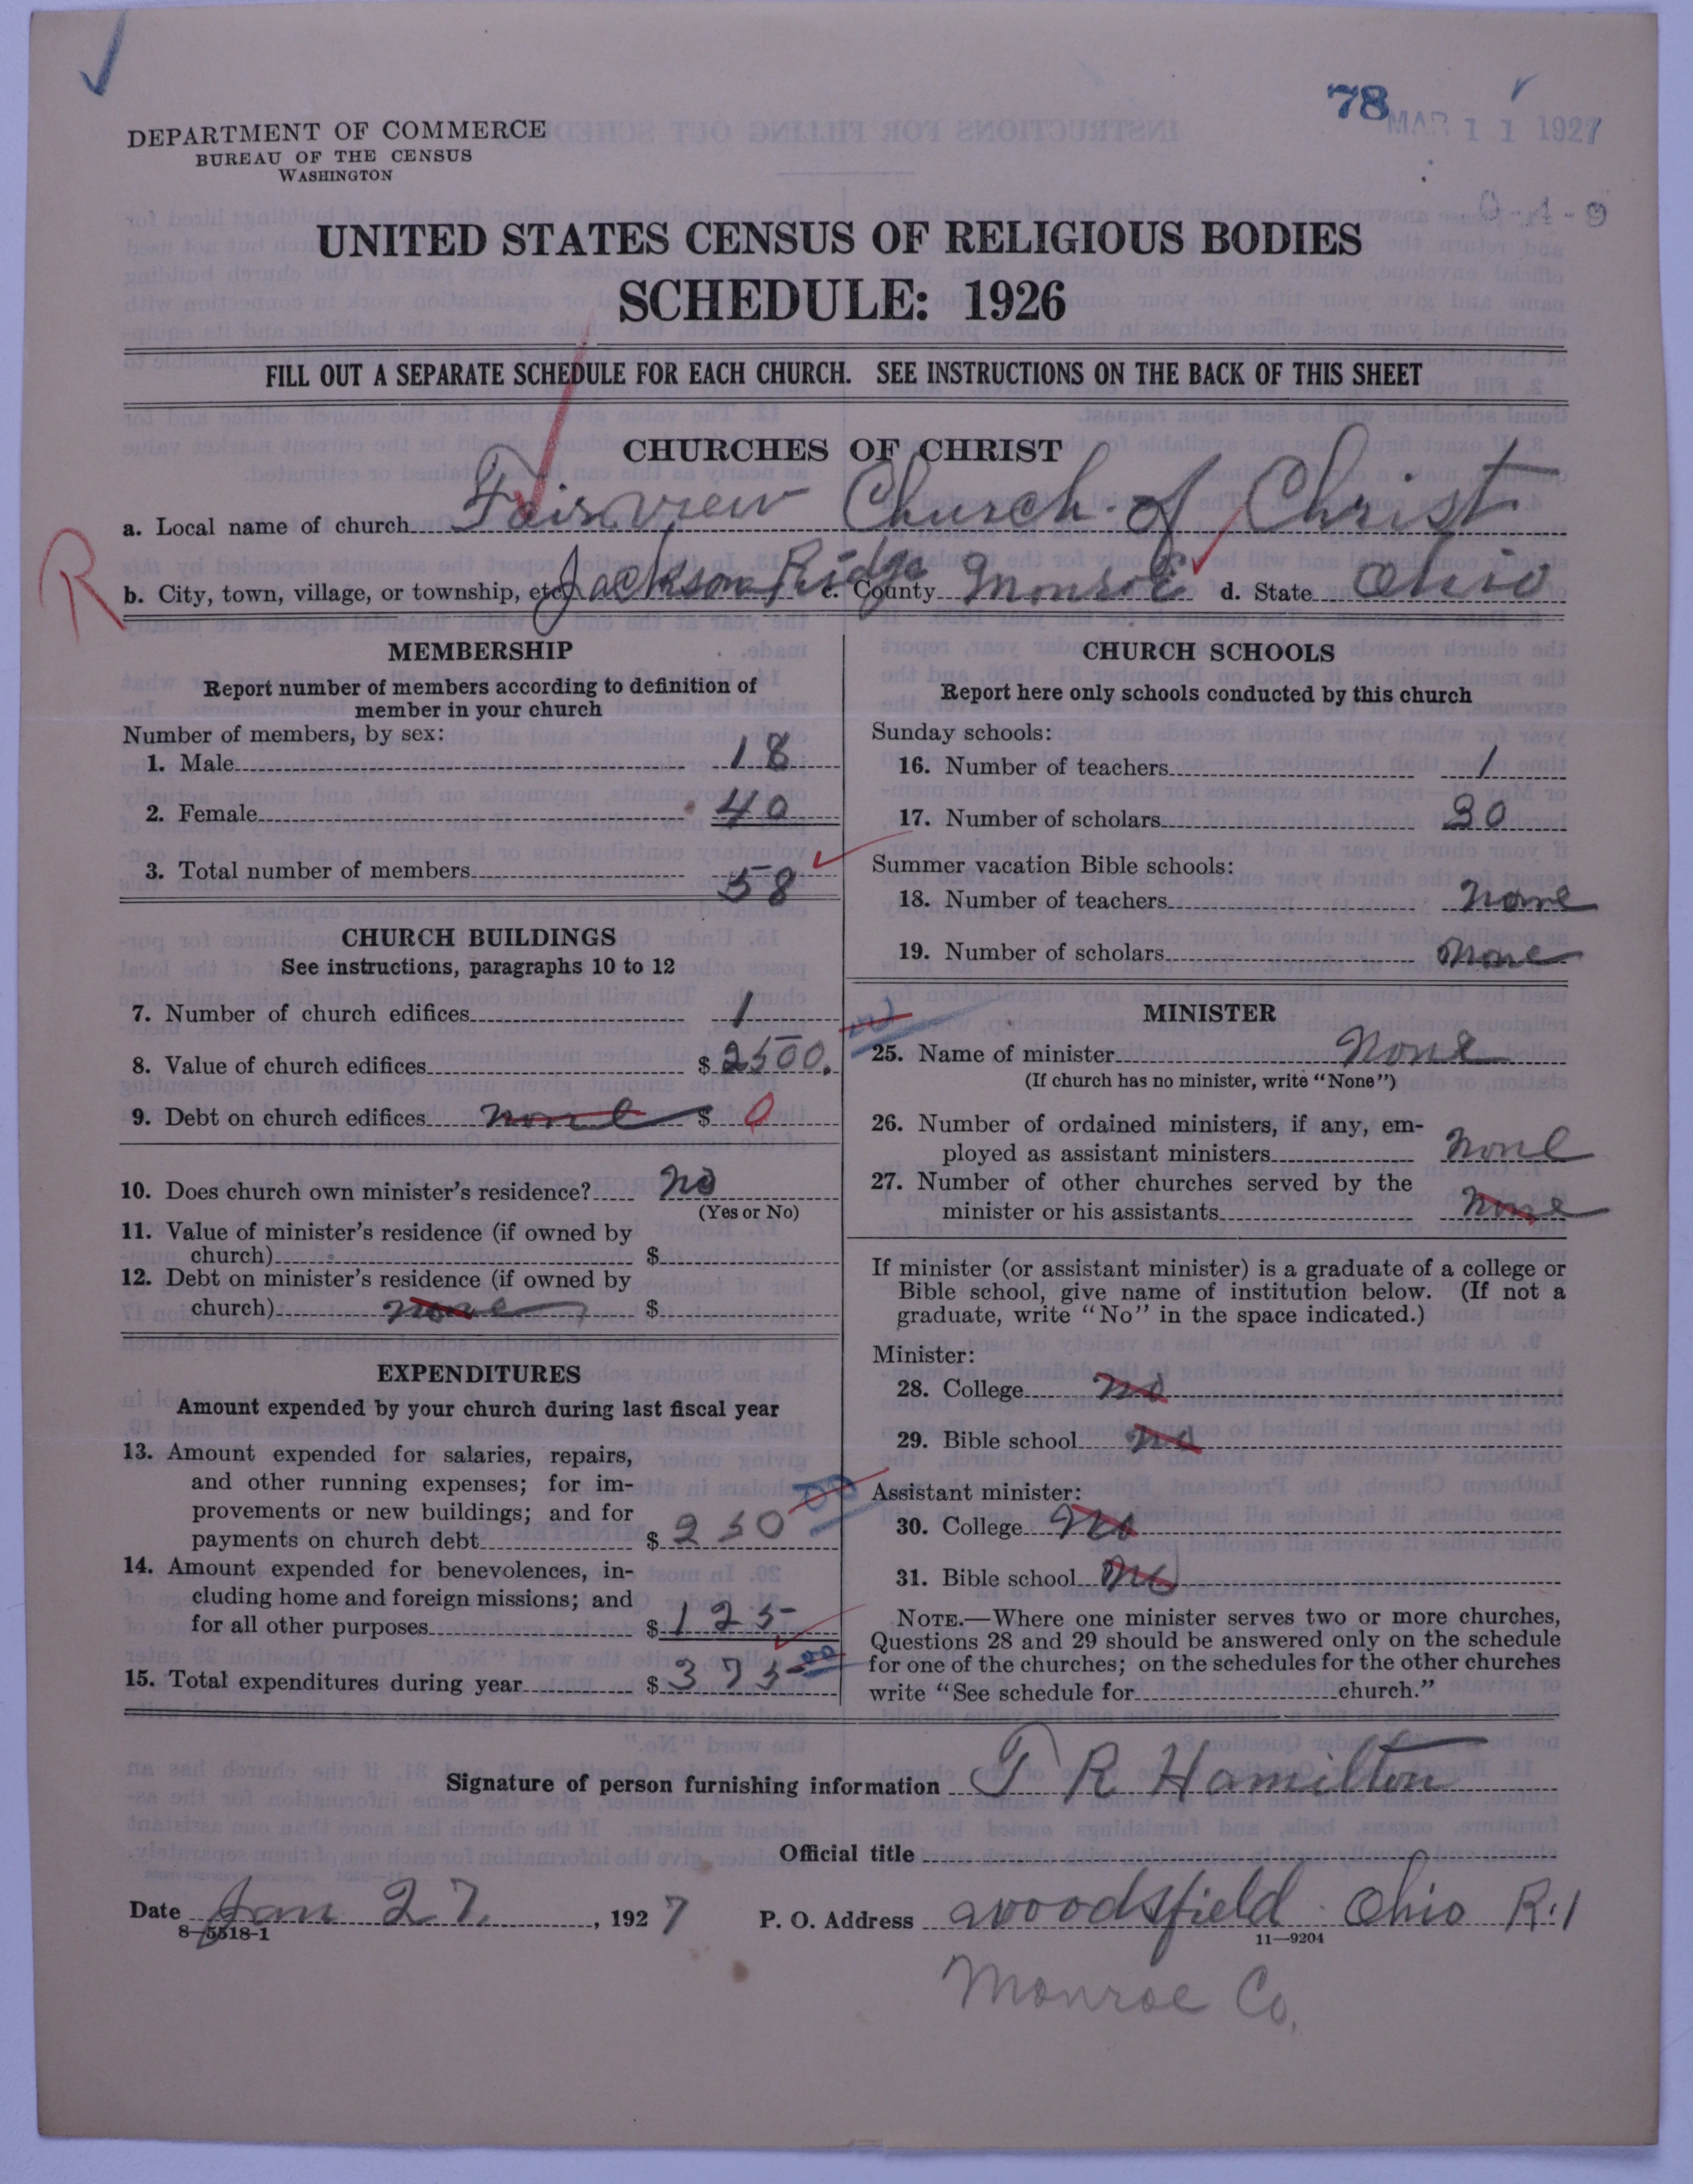 78 MAR 11 1927
DEPARTMENT OF COMMERCE
BUREAU OF THE CENSUS
WASHINGTON
UNITED STATES CENSUS OF RELIGIOUS BODIES
SCHEDULE: 1926
FILL OUT A SEPARATE SCHEDULE FOR EACH CHURCH. SEE INSTRUCTIONS ON THE BACK OF THIS SHEET
CHURCHES OF CHRIST
a. Local name of church Fairview Church of Christ
R
b. City, town, village, or township, etc. Jackson Ridge c. County Monroe d. State Ohio
MEMBERSHIP
Report number of members according to definition of
member in your church
Number of members, by sex:
1. Male 18
2. Female 40
3. Total number of members 58
CHURCH BUILDINGS
See instructions, paragraphs 10 to 12
7. Number of church edifices 1
8. Value of church edifices $ 2500.
9. Debt on church edifices none $ 0
10. Does church own minister's residence? no
(Yes or No)
11. Value of minister's residence (if owned by
church) $
12. Debt on minister's residence (if owned by
church) none $
EXPENDITURES
Amount expended by your church during last fiscal year
13. Amount expended for salaries, repairs,
and other running expenses; for im-
provements or new buildings; and for
payments on church debt $ 250 00
14. Amount expended for benevolences, in-
cluding home and foreign missions; and
for all other purposes $ 125
15. Total expenditures during year $ 375 00
CHURCH SCHOOLS
Report here only schools conducted by this church
Sunday schools:
16. Number of teachers 1
17. Number of scholars 30
Summer vacation Bible schools:
18. Number of teachers none
19. Number of scholars none
MINISTER
25. Name of minister none
(If church has no minister, write "None")
26. Number of ordained ministers, if any, em-
ployed as assistant ministers none
27. Number of other churches served by the
minister or his assistants none
If minister (or assistant minister) is a graduate of a college or
Bible school, give name of institution below. (If not a
graduate, write "No" in the space indicated.)
Minister:
28. College no
29. Bible school no
Assistant minister:
30. College no
31. Bible school no
NOTE.—Where one minister serves two or more churches,
Questions 28 and 29 should be answered only on the schedule
for one of the churches; on the schedules for the other churches
write "See schedule for church."
Signature of person furnishing information T R Hamilton
Official title
Date Jan 27, 1927 P. O. Address woodsfield Ohio R.1
8-5518-1 11—9204
Monroe Co.